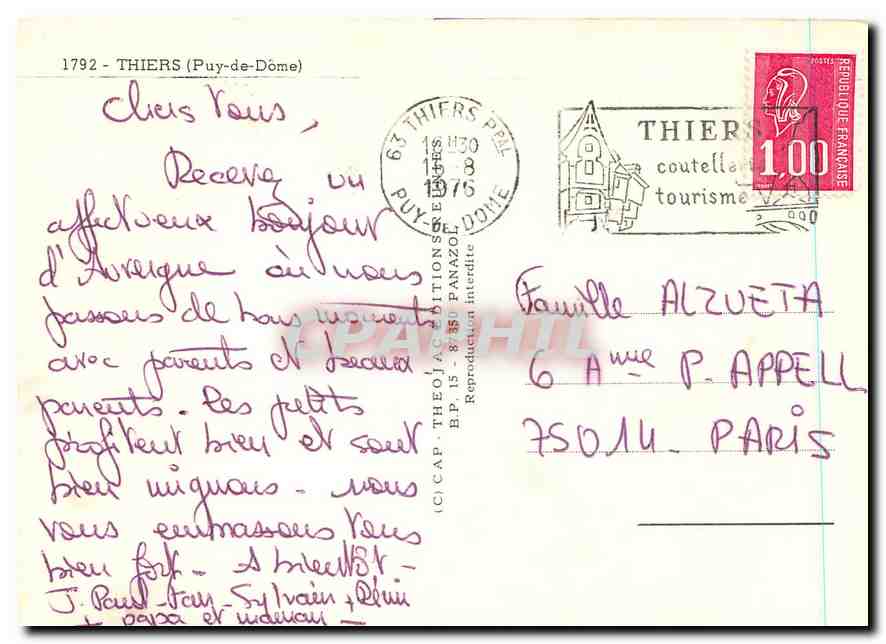 1792 - THIERS (Puy-de-Dôme)
Chers Vous,
Recevez un
affectueux bonjour
d'Auvergne où nous
passons de bons moments
avec parents et beaux
parents. Les petits
profitent bien et sont
bien mignons - nous
vous embrassons tous
bien fort - A bientôt -
J. Paul - - Sylvain + Rémi
+ papa et maman -
63 THIERS PPAL
16 H 30
-8
1976
PUY-DE-DOME
THIERS
coutellerie
tourisme
POSTES
RÉPUBLIQUE FRANÇAISE
1,00
(C) CAP - THEOJAC EDITIONS REUNIES
B.P. 15 - 87350 PANAZOL
Reproduction interdite
CPAPHIL
Famille ALZUETA
6 Anue P. APPELL
75014 - PARIS